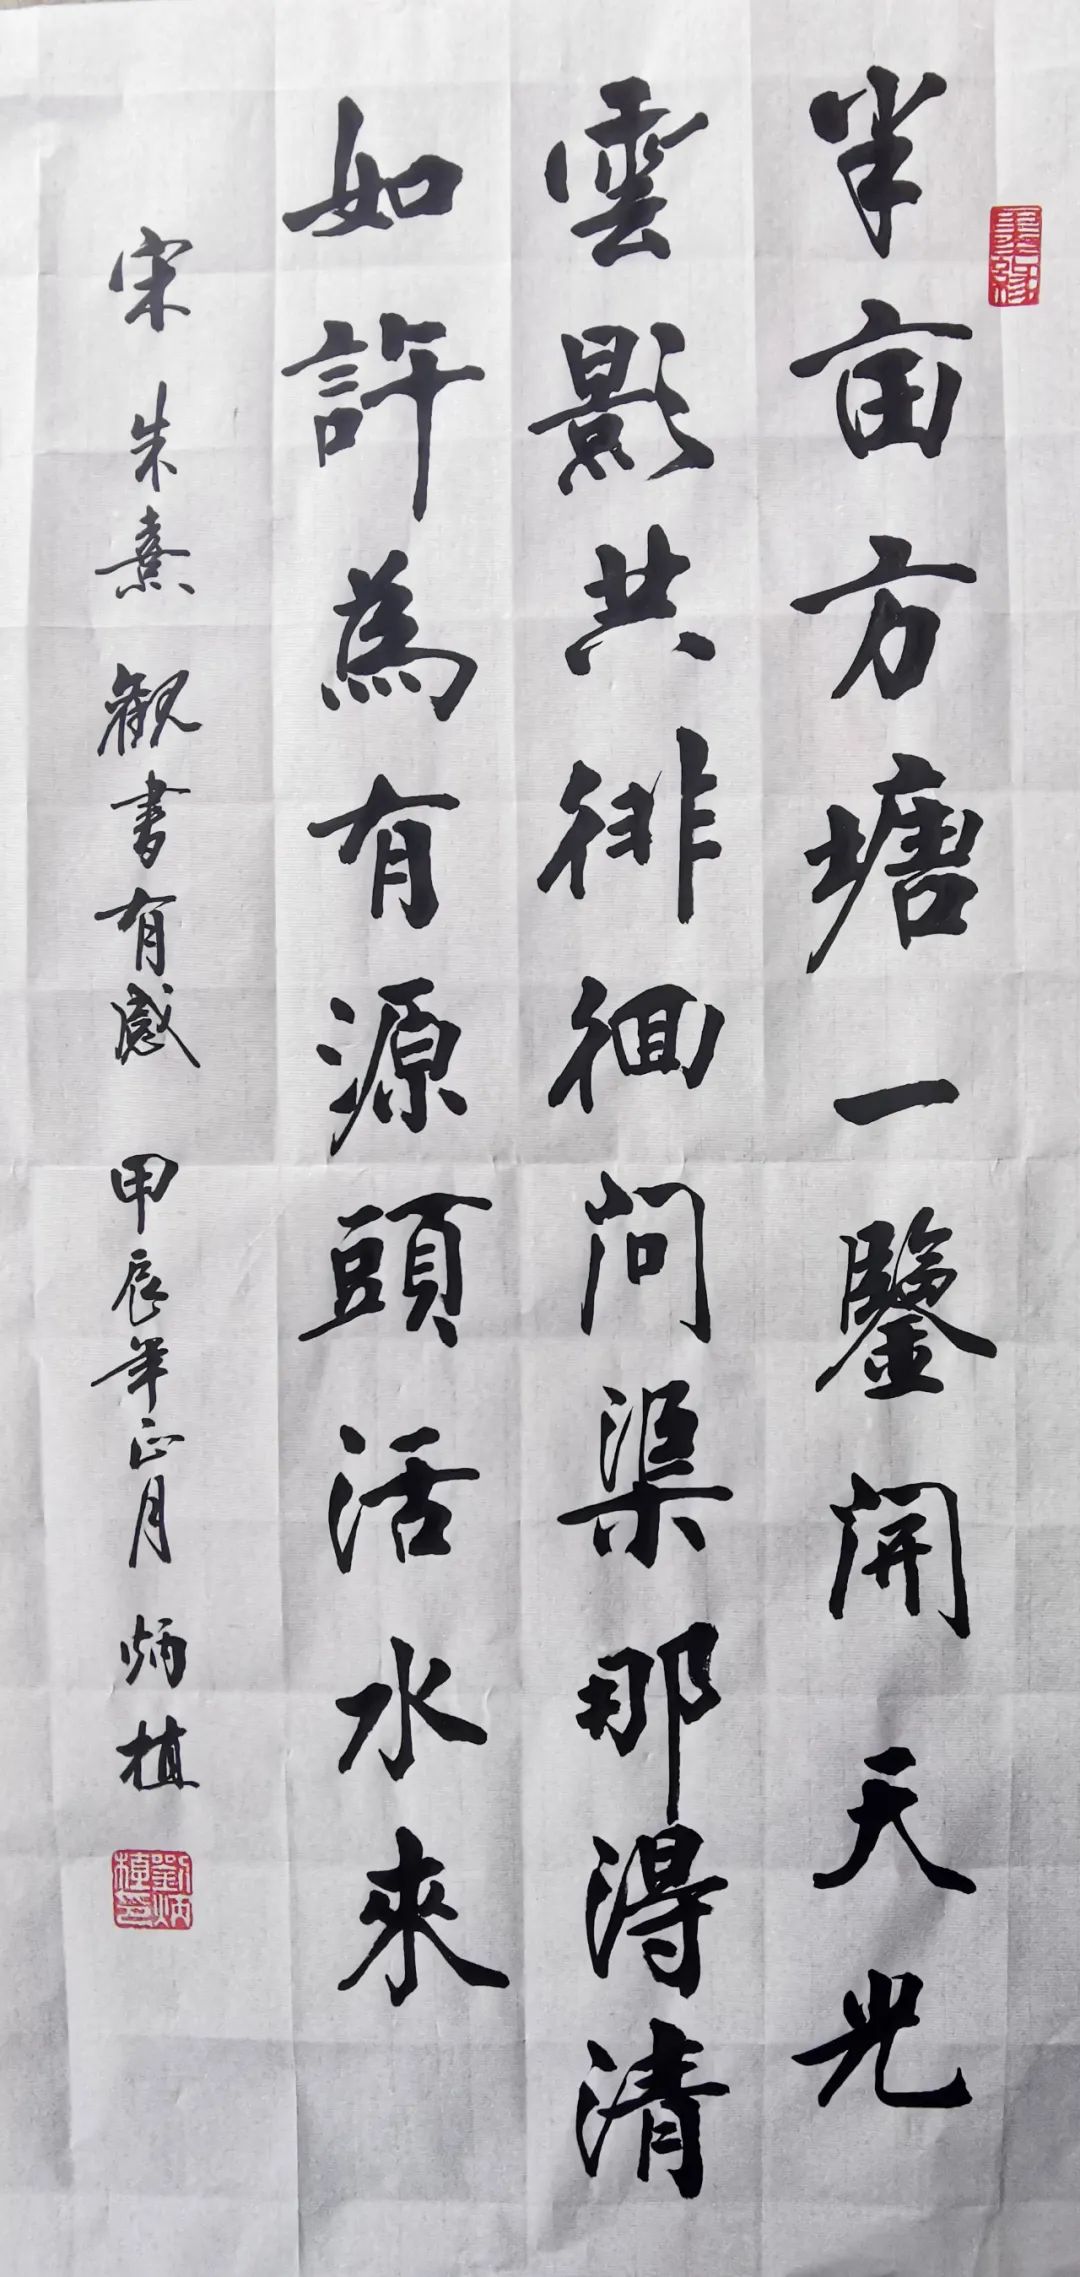 半亩方塘一鑒開天光
雲影共徘徊问渠那得清
如許為有源頭活水來
宋 朱熹 觀書有感 甲辰年正月 炳植
劉炳植印